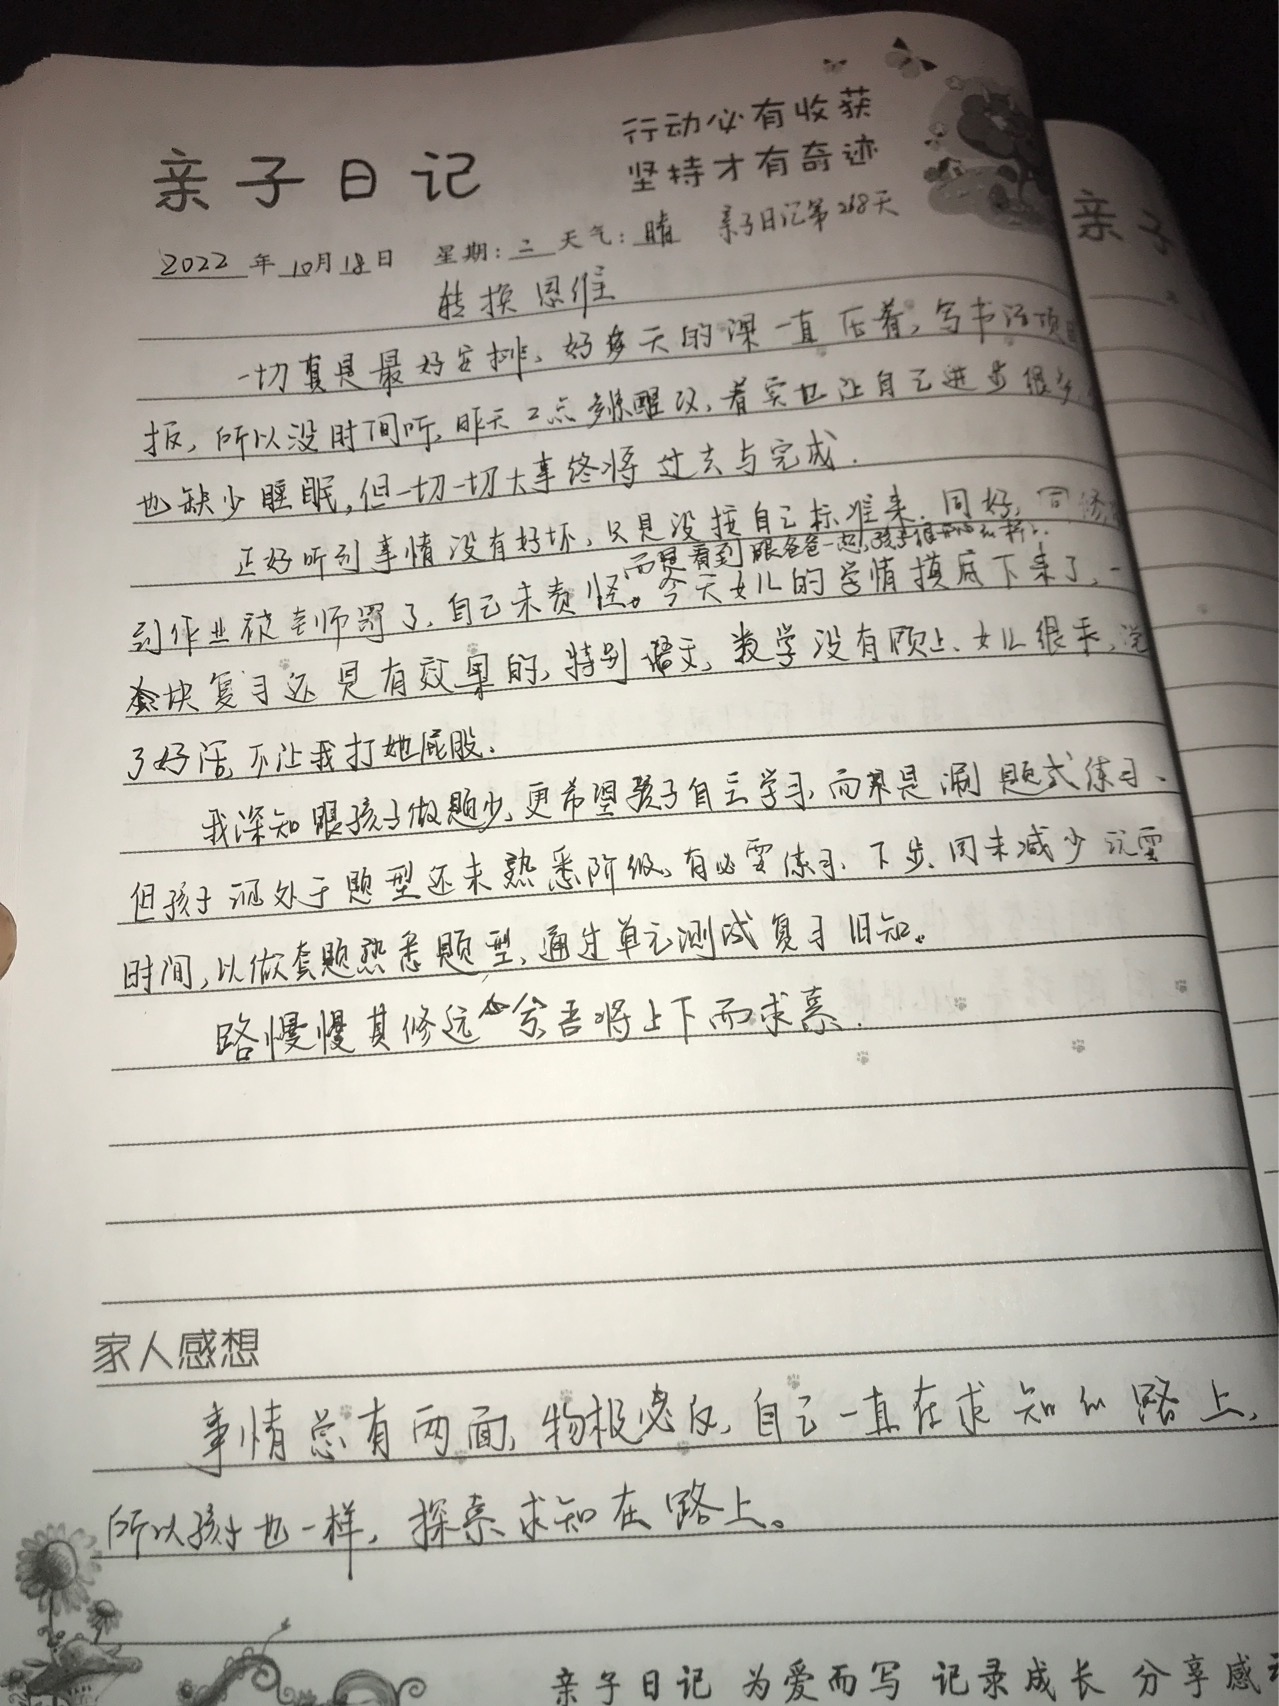 行动必有收获
亲子日记
坚持才有奇迹
2022年10月18日 星期:二 天气:晴 亲子日记第268天
转换思维
一切真是最好安排,好多天的课一直压着,写书法项
报,所以没时间听,昨天2点多醒,着实也让自己进步很多
也缺少睡眠,但一切一切大事终将过去与完成.
正好听到事情没有好坏,只是没按自己标准来.同好,同
而是看到跟爸爸一起,孩子很开心
到作业被老师写了,自己未责怪。今天女儿的学情摸底下来了,一
套块复习还是有效果的,特别语文,数学没有顾上、女儿很乖,说
了好话,不让我打她屁股.
我深知跟孩子做题少,更希望孩子自主学习,而不是涮题式练习、
但孩子还处于题型还未熟悉阶级,有必要练习、下步,周末减少玩耍
时间,以做套题熟悉题型,通过单元测试复习旧知。
路慢慢其修远兮,吾将上下而求索.
家人感想
事情总有两面,物极必反,自己一直在求知的路上,
所以孩子也一样,探索求知在路上。
亲子日记 为爱而写 记录成长 分享感
亲子